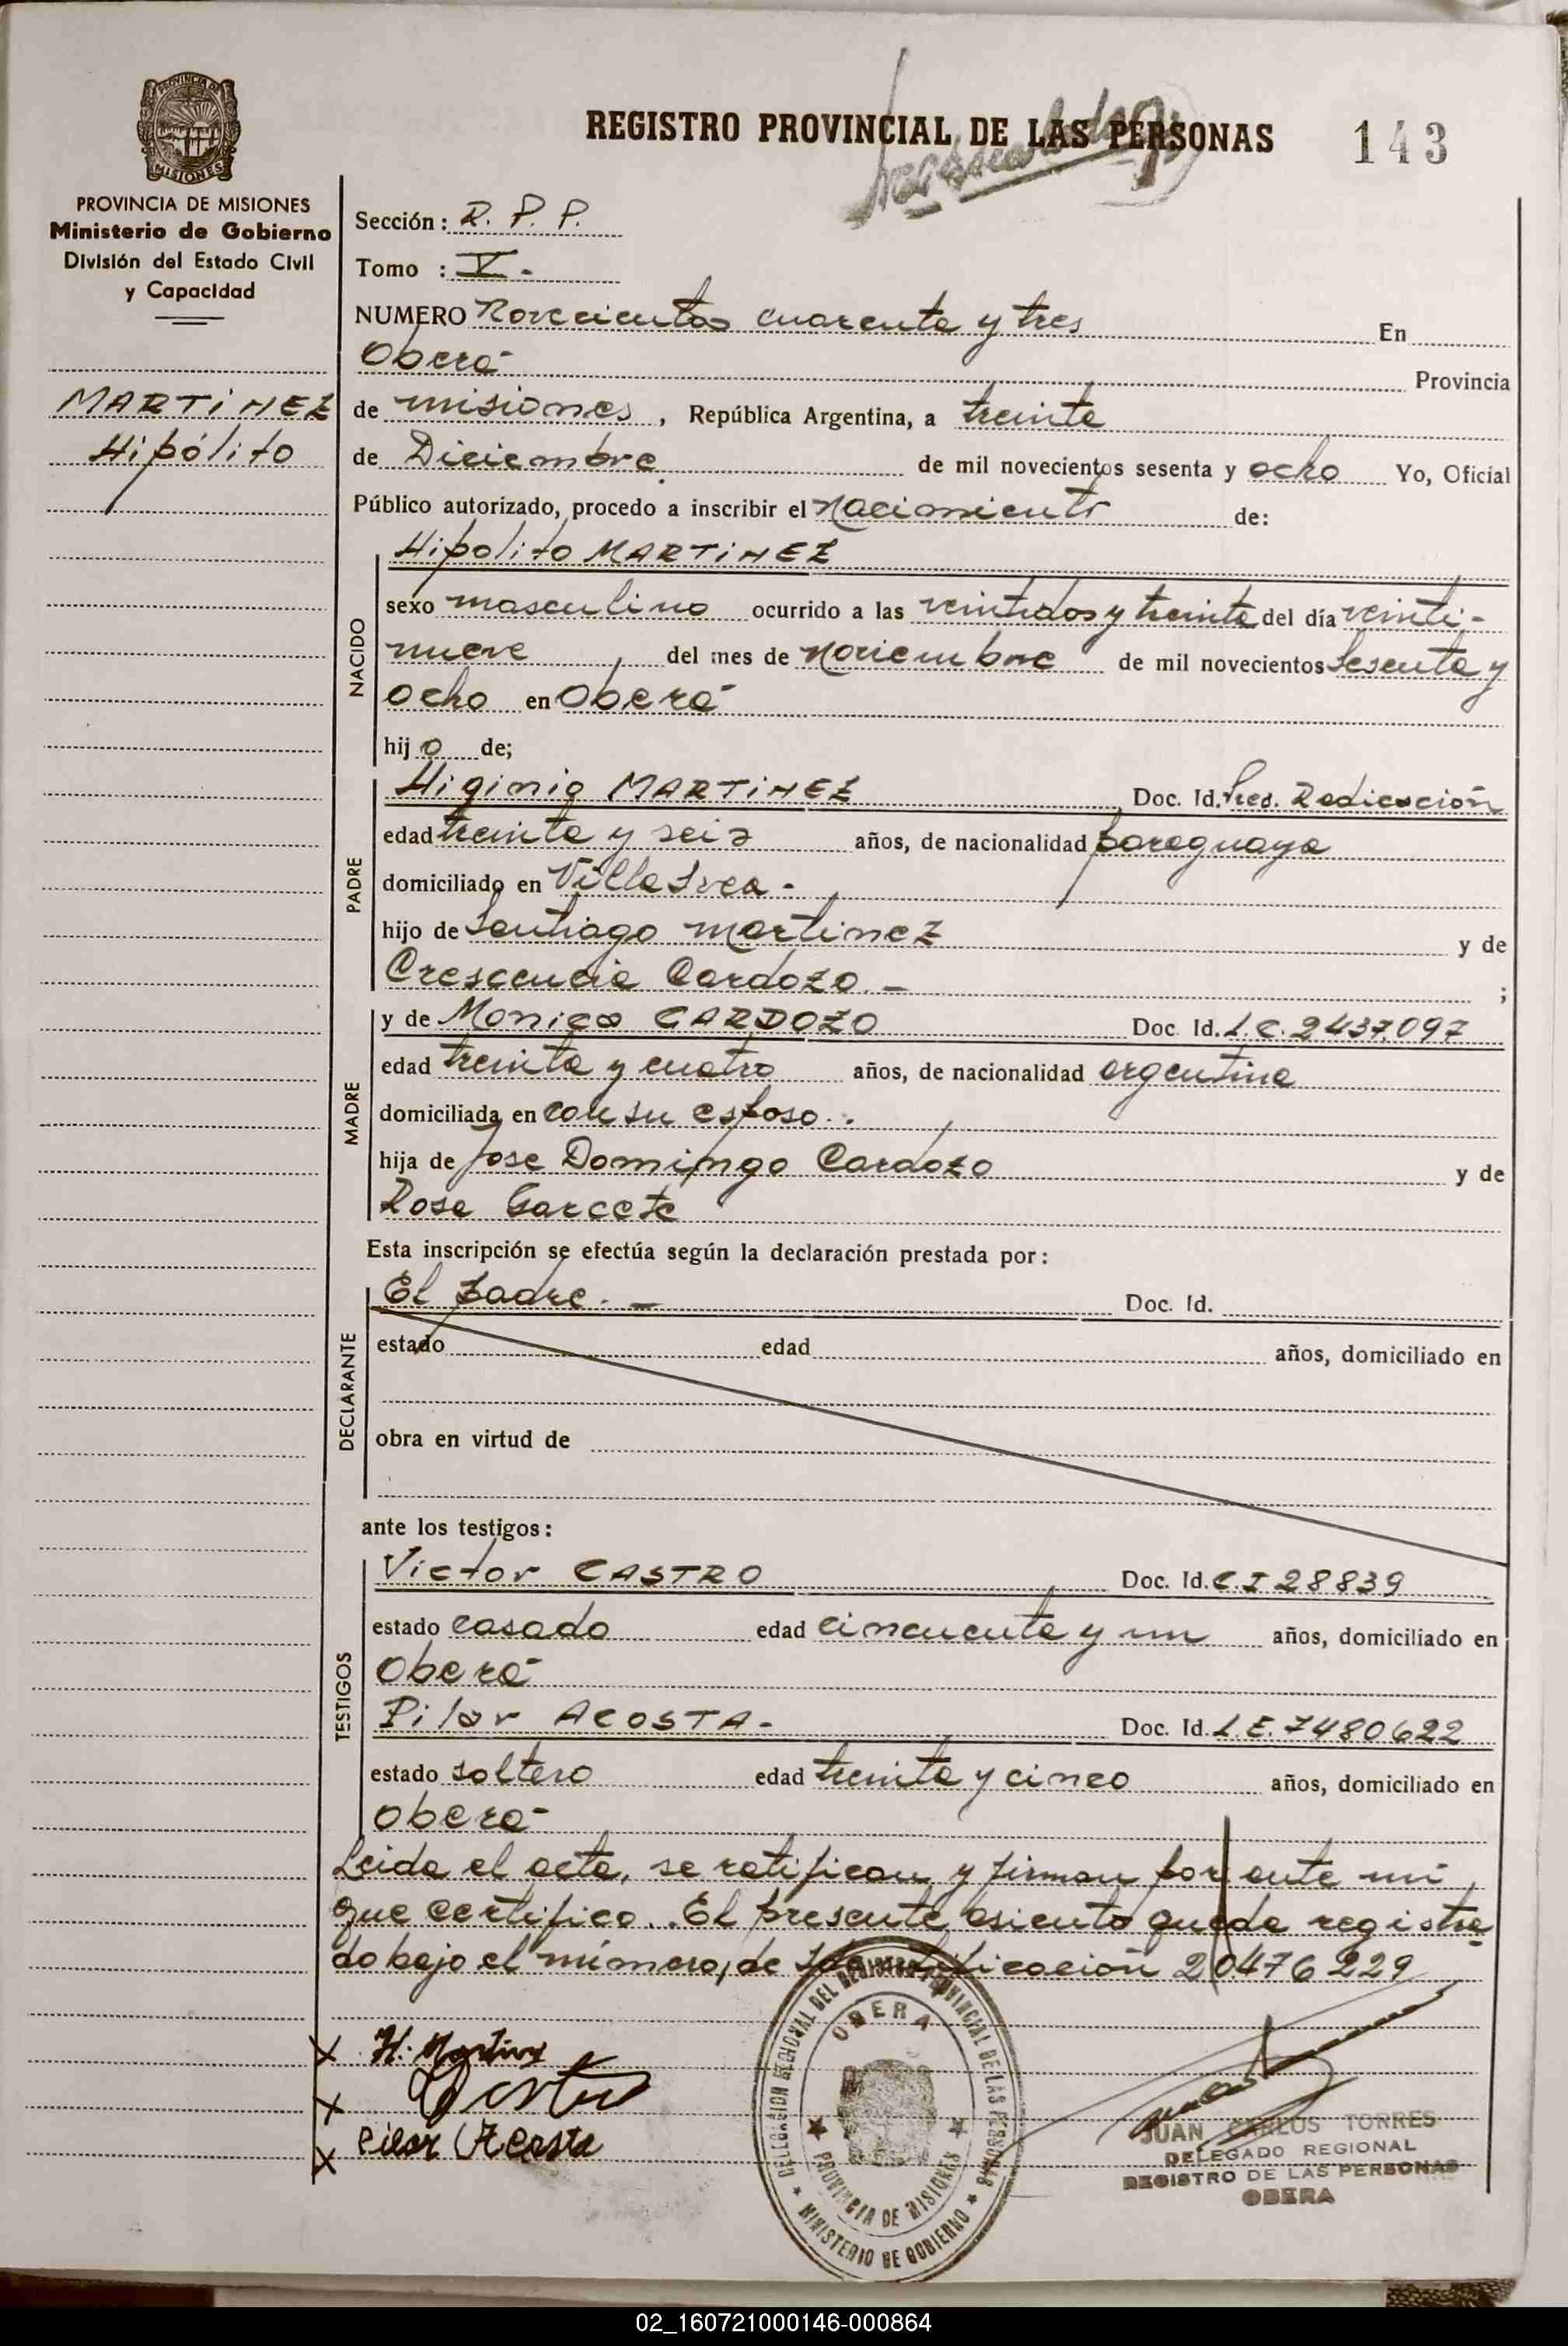 PROVINCIA DE MISIONES
PROVINCIA DE MISIONES
Ministerio de Gobierno
División del Estado Civil
y Capacidad
MARTINEZ
Hipólito
REGISTRO PROVINCIAL DE LAS PERSONAS 143
Sección: R. P. P.
Tomo : V.-
NUMERO Novecientos cuarenta y tres En
Oberá- Provincia
de misiones, República Argentina, a treinta
de Diciembre de mil novecientos sesenta y ocho Yo, Oficial
Público autorizado, procedo a inscribir el Nacimiento de:
NACIDO
Hipolito MARTINEZ
sexo masculino ocurrido a las veintidos y treinta del día veinti-
nueve del mes de Noviembre de mil novecientos Sesenta y
ocho en Oberá-
hijo de;
PADRE
Higinio MARTINEZ Doc. Id. Radicación
edad treinta y seis años, de nacionalidad paraguaya
domiciliado en Villa Svea-
hijo de Santiago Martinez y de
Crescencia Cardozo.- ;
MADRE
y de Monica CARDOZO Doc. Id. L.C. 2437.097
edad treinta y cuatro años, de nacionalidad argentina
domiciliada en con su esposo.-
hija de Jose Domingo Cardozo y de
Rosa Garcete
Esta inscripción se efectúa según la declaración prestada por:
DECLARANTE
El Padre.- Doc. Id.
estado edad años, domiciliado en
obra en virtud de
ante los testigos:
TESTIGOS
Victor CASTRO Doc. Id. C.I 28839
estado casado edad cincuenta y un años, domiciliado en
Oberá-
Pilar ACOSTA- Doc. Id. L.E. 7480622
estado soltero edad treinta y cinco años, domiciliado en
Oberá-
Leida el acta, se ratifican y firman por ante mi
que certifico.. El presente asiento queda registra
do bajo el número, de Identificación 20476229
X H. Martinez
X
X Pilar Acosta
DELEGACION REGIONAL DEL REGISTRO PROVINCIAL DE LAS PERSONAS
OBERA
PROVINCIA DE MISIONES
MINISTERIO DE GOBIERNO
JUAN CARLOS TORRES
DELEGADO REGIONAL
REGISTRO DE LAS PERSONAS
OBERA
02_160721000146-000864